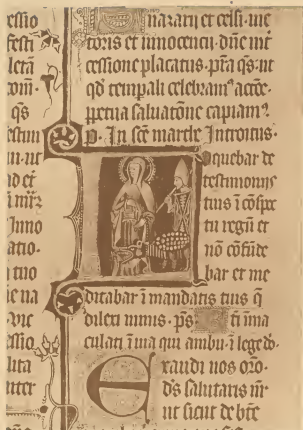 essio
festi
letā
com̄.
qs
estiui
ati tuo
.vie
essio.
lita
iter
nazarij et celsi. vic
toris et innocencij. dn̄e int̄
cessione placatus. p̄ta q̄s. ut
qd̄ tempali celebram⁹ actōe.
ppetua saluatōne capiam⁹.
In sc̄e marthe Introitus.
Loquebar de
testimonijs
tuis ī cōspc̄
tu regū et
nō cōfūde
bar et me
ditabar ī mandatis tuis q̄
dilexi nimis. p̄s. ti īma
culati ī uia qui ambu. ī lege dō.
Exaudi nos
d̄s salutaris nr̄
ut sicut de bt̄e